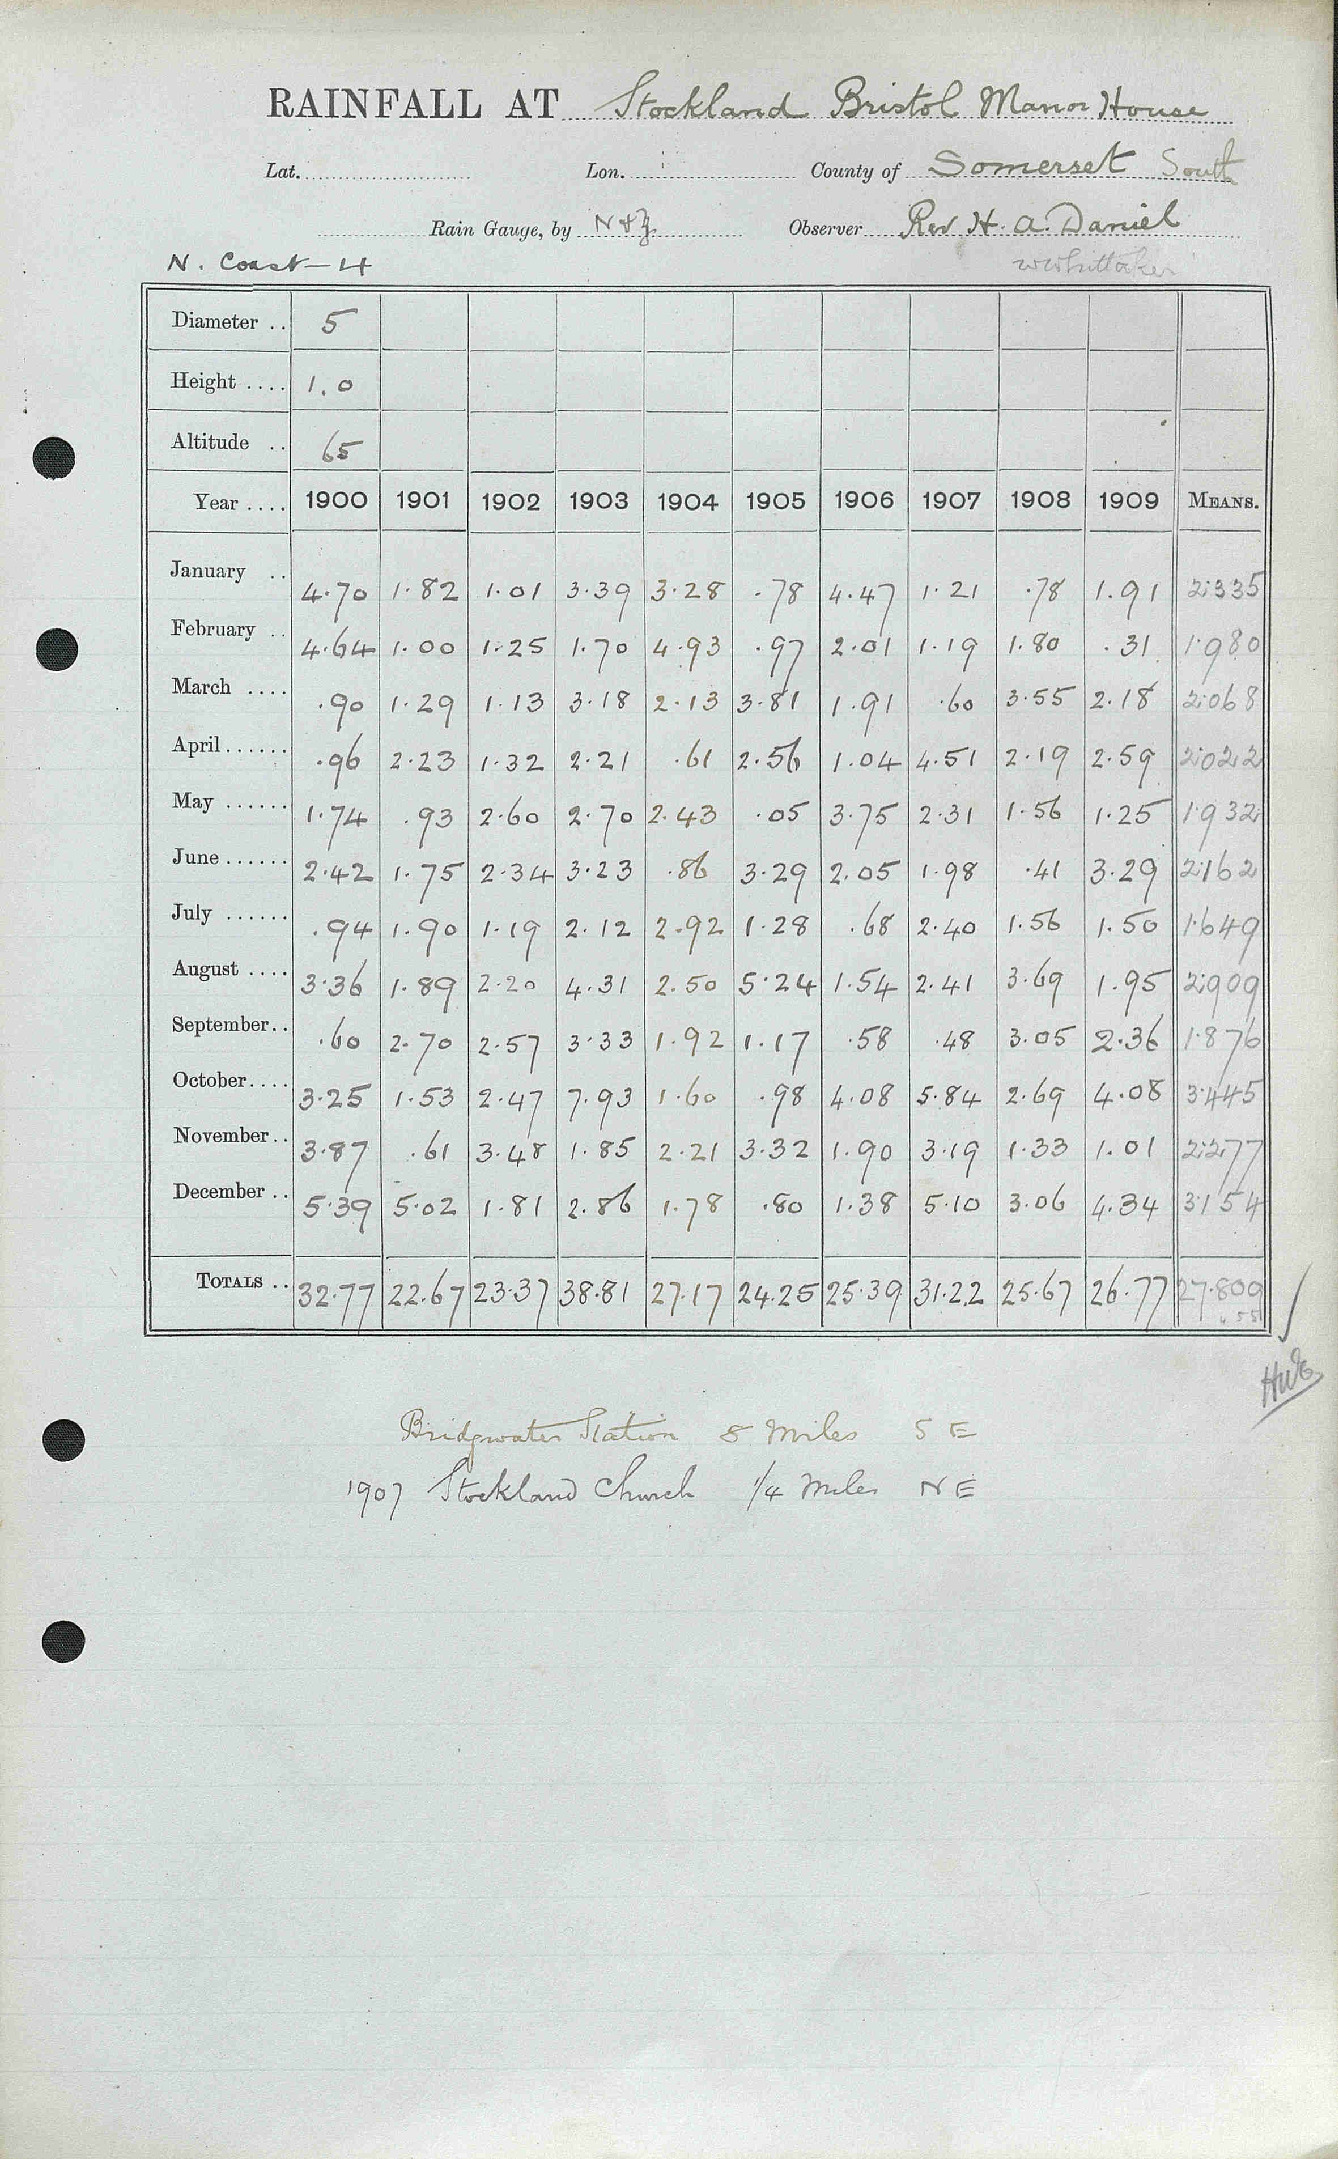 RAINFALL AT Stockland Bristol Manor House
Lat. Lon. County of Somerset South
Rain Gauge, by N & Z. Observer Rev H. A. Daniel
N. Coast - 4 W Whittaker
Diameter .. 5
Height .... 1.0
Altitude .. 65
Year .... 1900 1901 1902 1903 1904 1905 1906 1907 1908 1909 MEANS.
January .. 4.70 1.82 1.01 3.39 3.28 .78 4.47 1.21 .78 1.91 2.335
February .. 4.64 1.00 1.25 1.70 4.93 .97 2.01 1.19 1.80 .31 1.980
March .... .90 1.29 1.13 3.18 2.13 3.81 1.91 .60 3.55 2.18 2.068
April...... .96 2.23 1.32 2.21 .61 2.56 1.04 4.51 2.19 2.59 2.022
May ...... 1.74 .93 2.60 2.70 2.43 .05 3.75 2.31 1.56 1.25 1.932
June...... 2.42 1.75 2.34 3.23 .86 3.29 2.05 1.98 .41 3.29 2.162
July ...... .94 1.90 1.19 2.12 2.92 1.28 .68 2.40 1.56 1.50 1.649
August .... 3.36 1.89 2.20 4.31 2.50 5.24 1.54 2.41 3.69 1.95 2.909
September.. .60 2.70 2.57 3.33 1.92 1.17 .58 .48 3.05 2.36 1.876
October.... 3.25 1.53 2.47 7.93 1.60 .98 4.08 5.84 2.69 4.08 3.445
November.. 3.87 .61 3.48 1.85 2.21 3.32 1.90 3.19 1.33 1.01 2.277
December .. 5.39 5.02 1.81 2.86 1.78 .80 1.38 5.10 3.06 4.34 3.154
TOTALS .. 32.77 22.67 23.37 38.81 27.17 24.25 25.39 31.22 25.67 26.77 27.809
Bridgwater Station 8 Miles S E
1907 Stockland Church 1/4 Miles N E